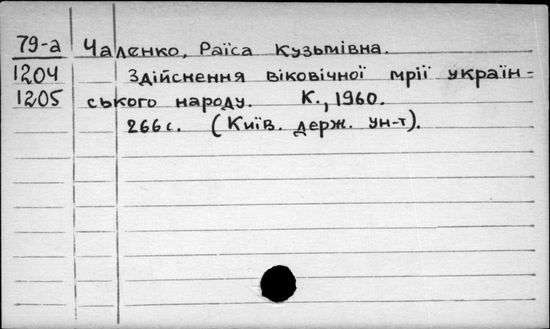 79-а Чаленко, Раїса Кузьмівна.
1204 Здійснення віковічної мрії україн-
1205 ського народу. К., 1960.
266с. (Київ. держ. ун-т).